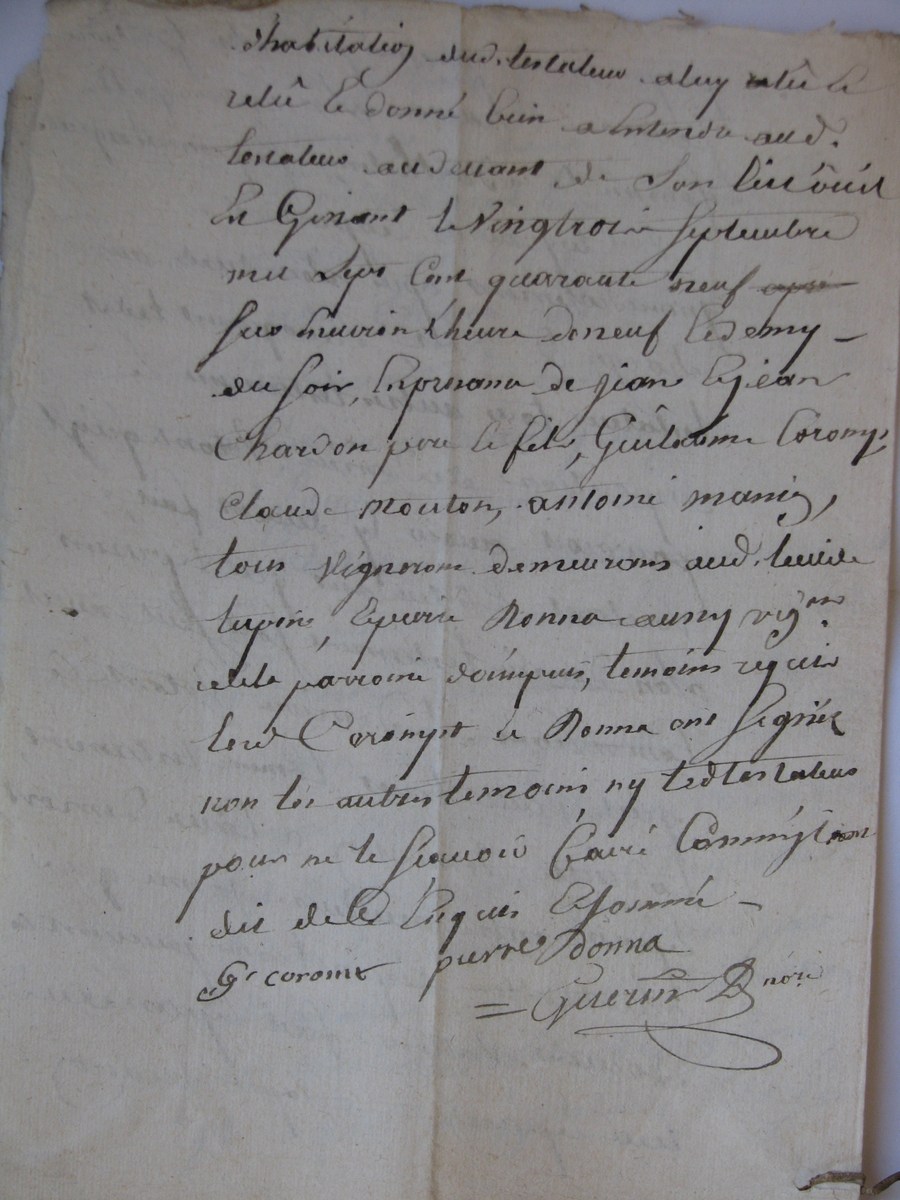 d'habitation dud. testateur a luy relû le
relû Et donné bien a Entendre aud.
testateur audevant de son lict où il
Est Gisant le Vingtrois septembre
mil sept Cent quarante neuf
sur Environ L'heure de neuf Et demy
du soir, En presence de jean Et jean
Chardon pere Et fils, Guillaume Corompt
Claude mouton, antoine
tous Vignerons demeurans aud. lieu de
tupins, Et pierre Donna aussy vign.on
de la parroisse d'ampuis, temoins requis
led. Corompt Et Donna ont signés
non les autres temoins ny led. testateur
pour ne le sçavoir faire Comm'ils ont
dit de ce Enquis Et sommé
G. coromt pierre donna
= Guerin nore